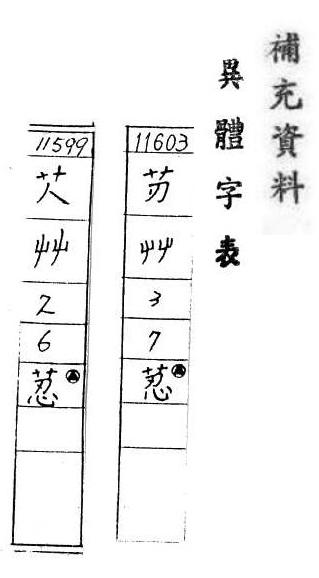 補充資料
異體字表
11603
艸
3
7
11599
艸
2
6